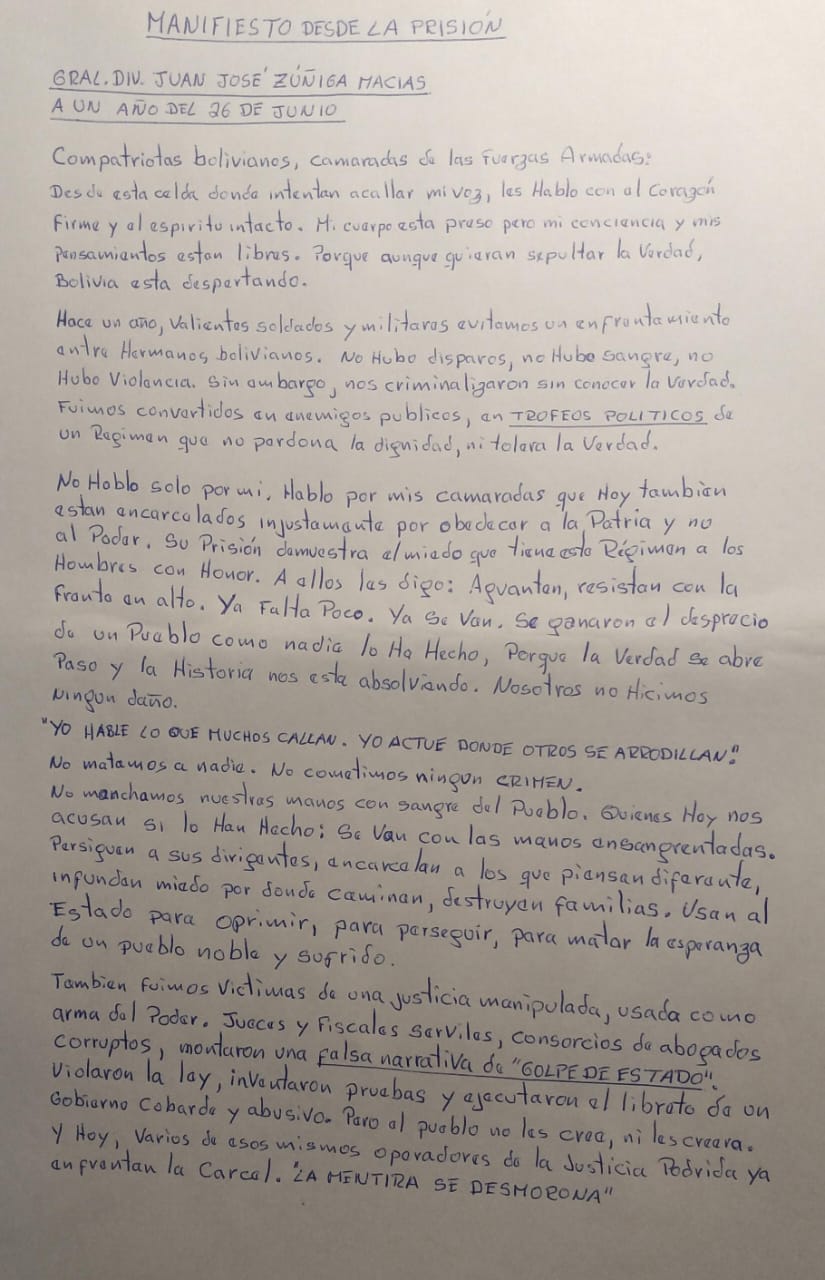 MANIFIESTO DESDE LA PRISIÓN
GRAL. DIV. JUAN JOSÉ ZÚÑIGA MACIAS
A UN AÑO DEL 26 DE JUNIO
Compatriotas bolivianos, camaradas de las Fuerzas Armadas:
Desde esta celda donde intentan acallar mi voz, les Hablo con el Corazón
Firme y el espiritu intacto. Mi cuerpo esta preso pero mi conciencia y mis
Pensamientos estan libres. Porque aunque quieran sepultar la Verdad,
Bolivia esta despertando.
Hace un año, Valientes soldados y militares evitamos un enfrentamiento
entre Hermanos bolivianos. No Hubo disparos, no Hubo Sangre, no
Hubo Violencia. Sin embargo, nos criminalizaron sin conocer la Verdad.
Fuimos convertidos en enemigos publicos, en TROFEOS POLITICOS de
un Regimen que no perdona la dignidad, ni tolera la Verdad.
No Hablo solo por mi. Hablo por mis camaradas que Hoy tambien
estan encarcelados injustamente por obedecer a la Patria y no
al Poder. Su Prisión demuestra el miedo que tiene este Régimen a los
Hombres con Honor. A ellos les digo: Aguanten, resistan con la
Frente en alto. Ya Falta Poco. Ya Se Van. Se ganaron el desprecio
de un Pueblo como nadie lo Ha Hecho, Porque la Verdad se abre
Paso y la Historia nos esta absolviendo. Nosotros no Hicimos
Ningun daño.
"YO HABLE LO QUE MUCHOS CALLAN. YO ACTUE DONDE OTROS SE ARRODILLAN."
No matamos a nadie. No cometimos ningun CRIMEN.
No manchamos nuestras manos con sangre del Pueblo. Quienes Hoy nos
acusan si lo Han Hecho: Se Van con las manos ensangrentadas.
Persiguen a sus dirigentes, encarcelan a los que piensan diferente,
infunden miedo por donde caminan, destruyen familias. Usan al
Estado para oprimir, para perseguir, para matar la esperanza
de un pueblo noble y sufrido.
Tambien fuimos Victimas de una justicia manipulada, usada como
arma del Poder. Jueces y Fiscales serviles, consorcios de abogados
corruptos, montaron una falsa narrativa de "GOLPE DE ESTADO".
Violaron la ley, inventaron pruebas y ejecutaron el libreto de un
Gobierno Cobarde y abusivo. Pero el pueblo no les cree, ni les creera.
Y Hoy, Varios de esos mismos operadores de la Justicia Podrida ya
enfrentan la Carcel. "LA MENTIRA SE DESMORONA"